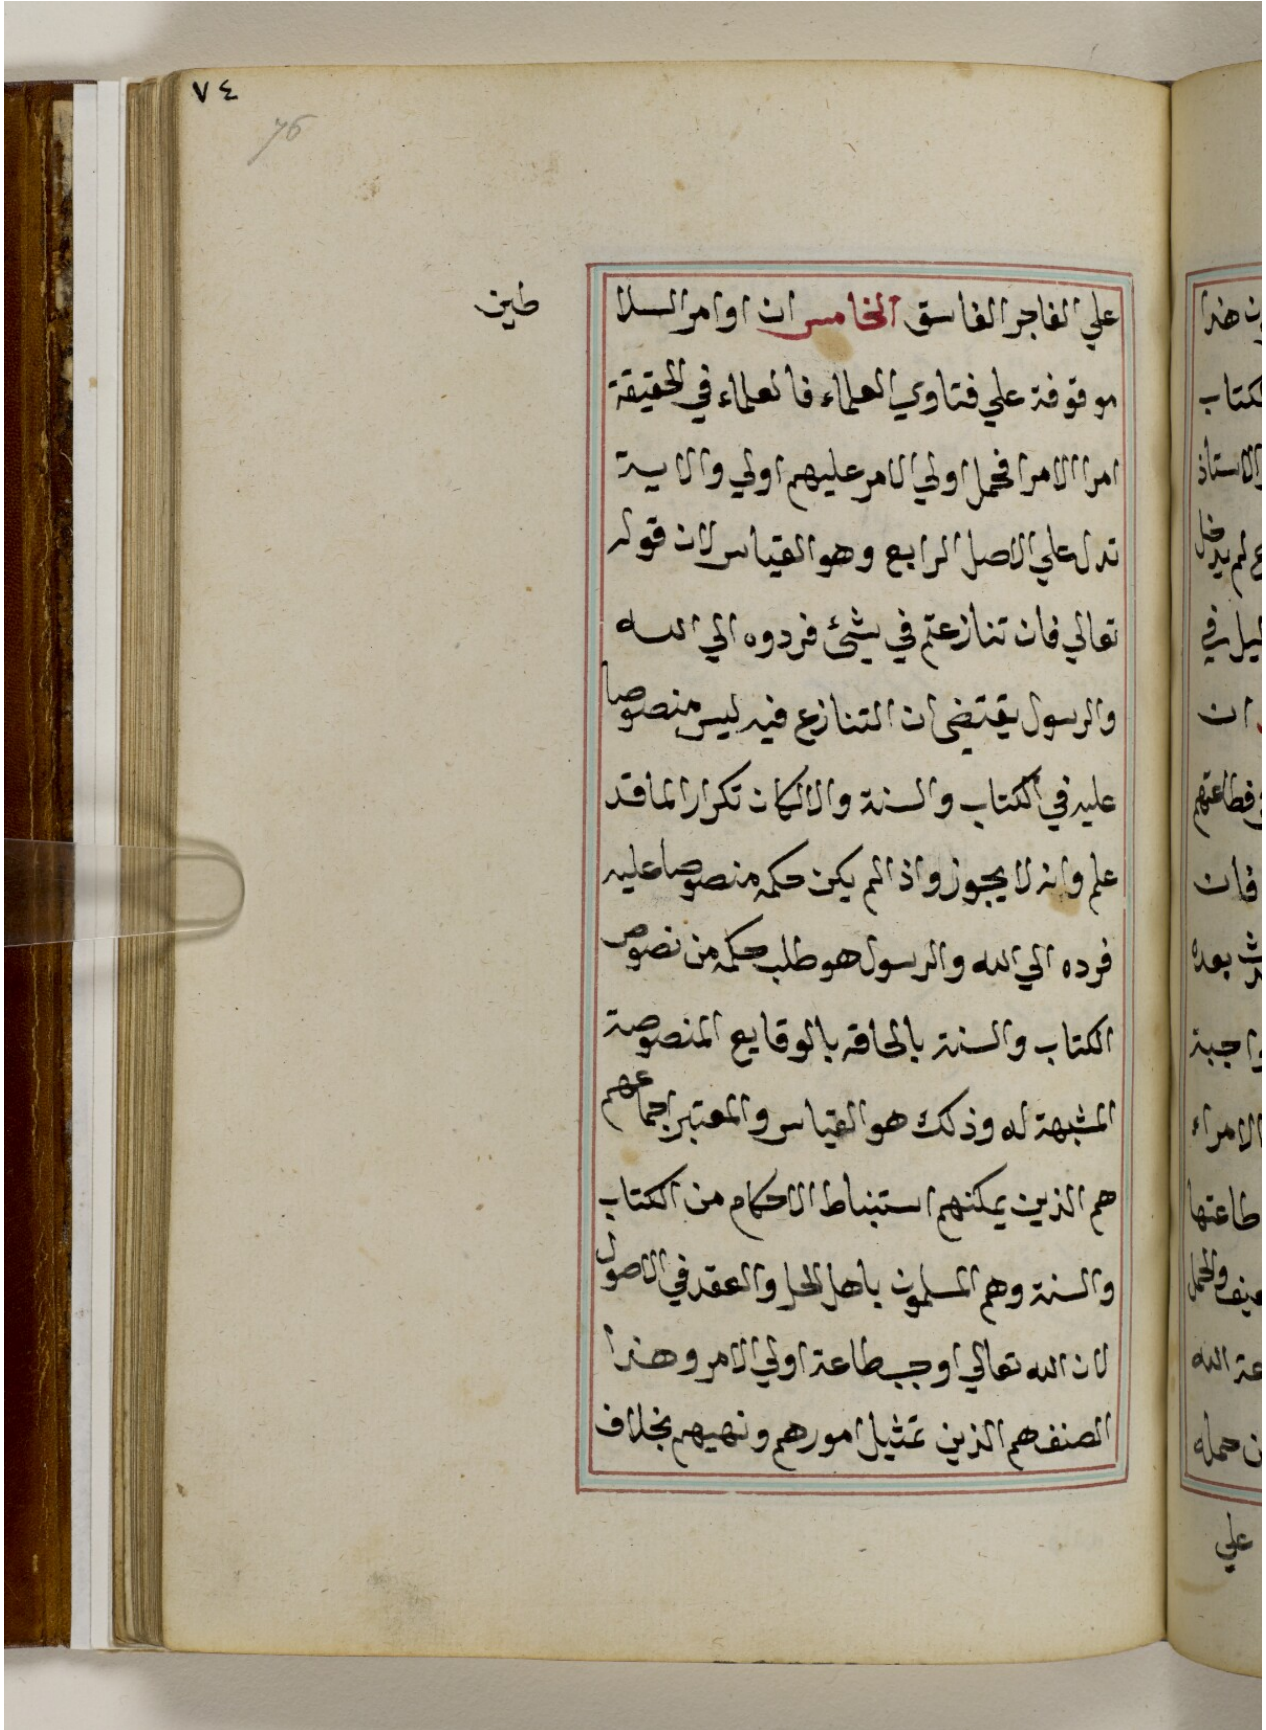 ٧٤
76
علي الفاجر الفاسق الخامس ان اوامر السلا
طين
موقوفة علي فتاوي العلماء فالعلماء في الحقيقة
امرا الامرا فحمل اولي الامر عليهم اولي والاية
تدل علي الاصل الرابع وهو القياس لان قوله
تعالي فان تنازعتم في شئ فردوه الي الله
والرسول يقتضي ان التنازع فيه ليس منصوصا
عليه في الكتاب والسنة والا لكان تكرارا لما قد
علم وانه لا يجوز واذا لم يكن حكمه منصوصا عليه
فرده الي الله والرسول هو طلب حكمه من نصوص
الكتاب والسنة بالحاقه بالوقايع المنصوصة
المشبهة له وذلك هو القياس والمعتبر اجماعهم
هم الذين يمكنهم استنباط الاحكام من الكتاب
والسنة وهم المسلمون باهل الحل والعقد في الاصول
لان الله تعالي اوجب طاعة اولي الامر وهذا
الصنف هم الذين تمثيل امورهم ونهيهم بخلاف
ن هذا
لكتاب
الاستاذ
ع لم يدخل
ليل في
ان
فطاعتهم
فان
بعده
واجبة
الامراء
طاعتها
والحمل
عة الله
ن حمله
علي